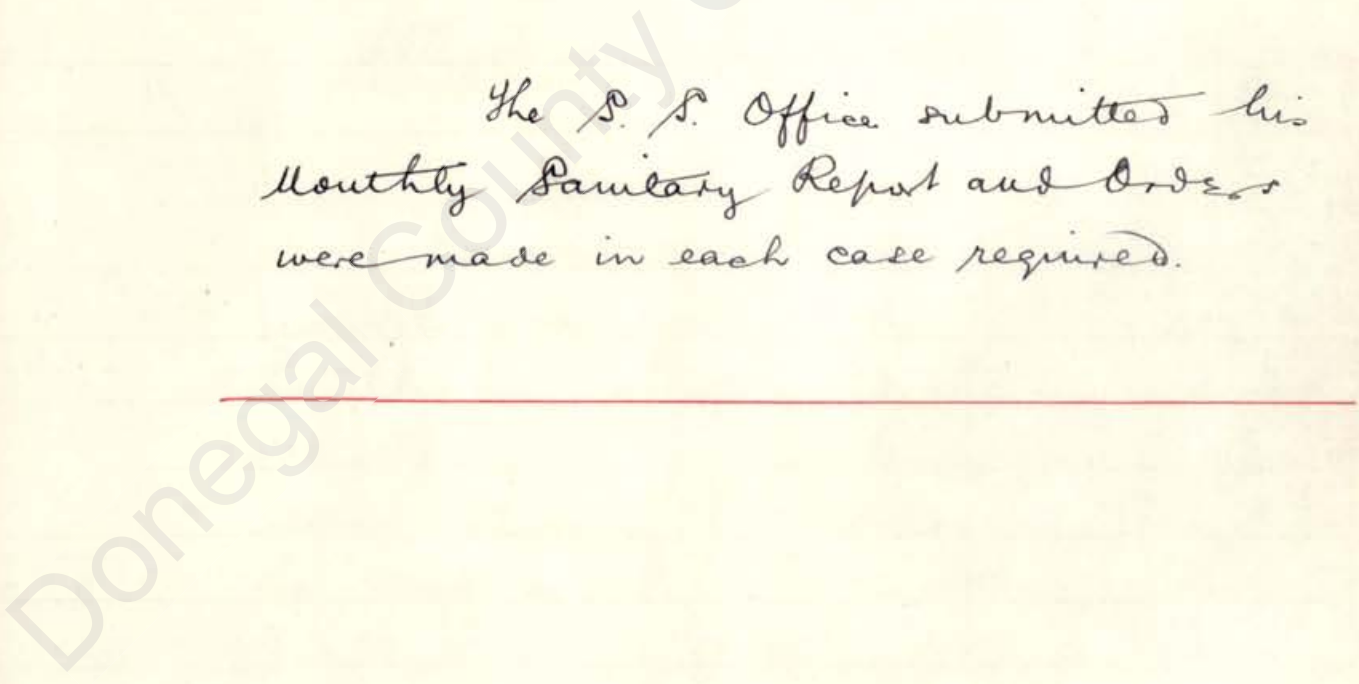 The S. S. Office submitted his
Monthly Sanitary Report and Orders
were made in each case required.
Donegal County